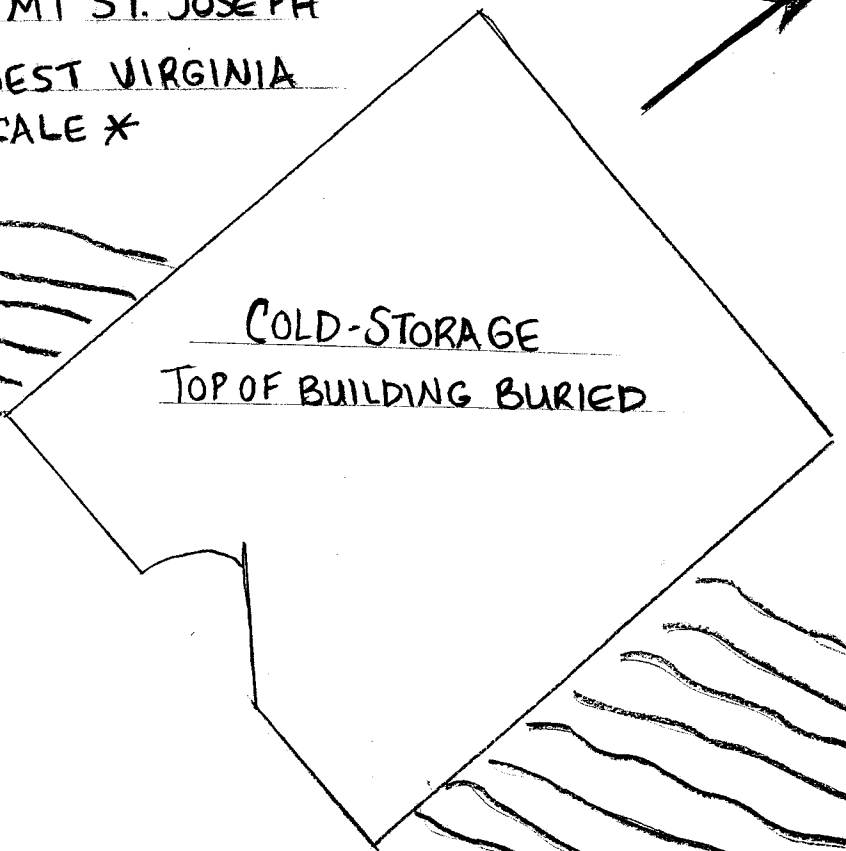 MT ST. JOSEPH
EST VIRGINIA
CALE *
COLD-STORAGE
TOP OF BUILDING BURIED